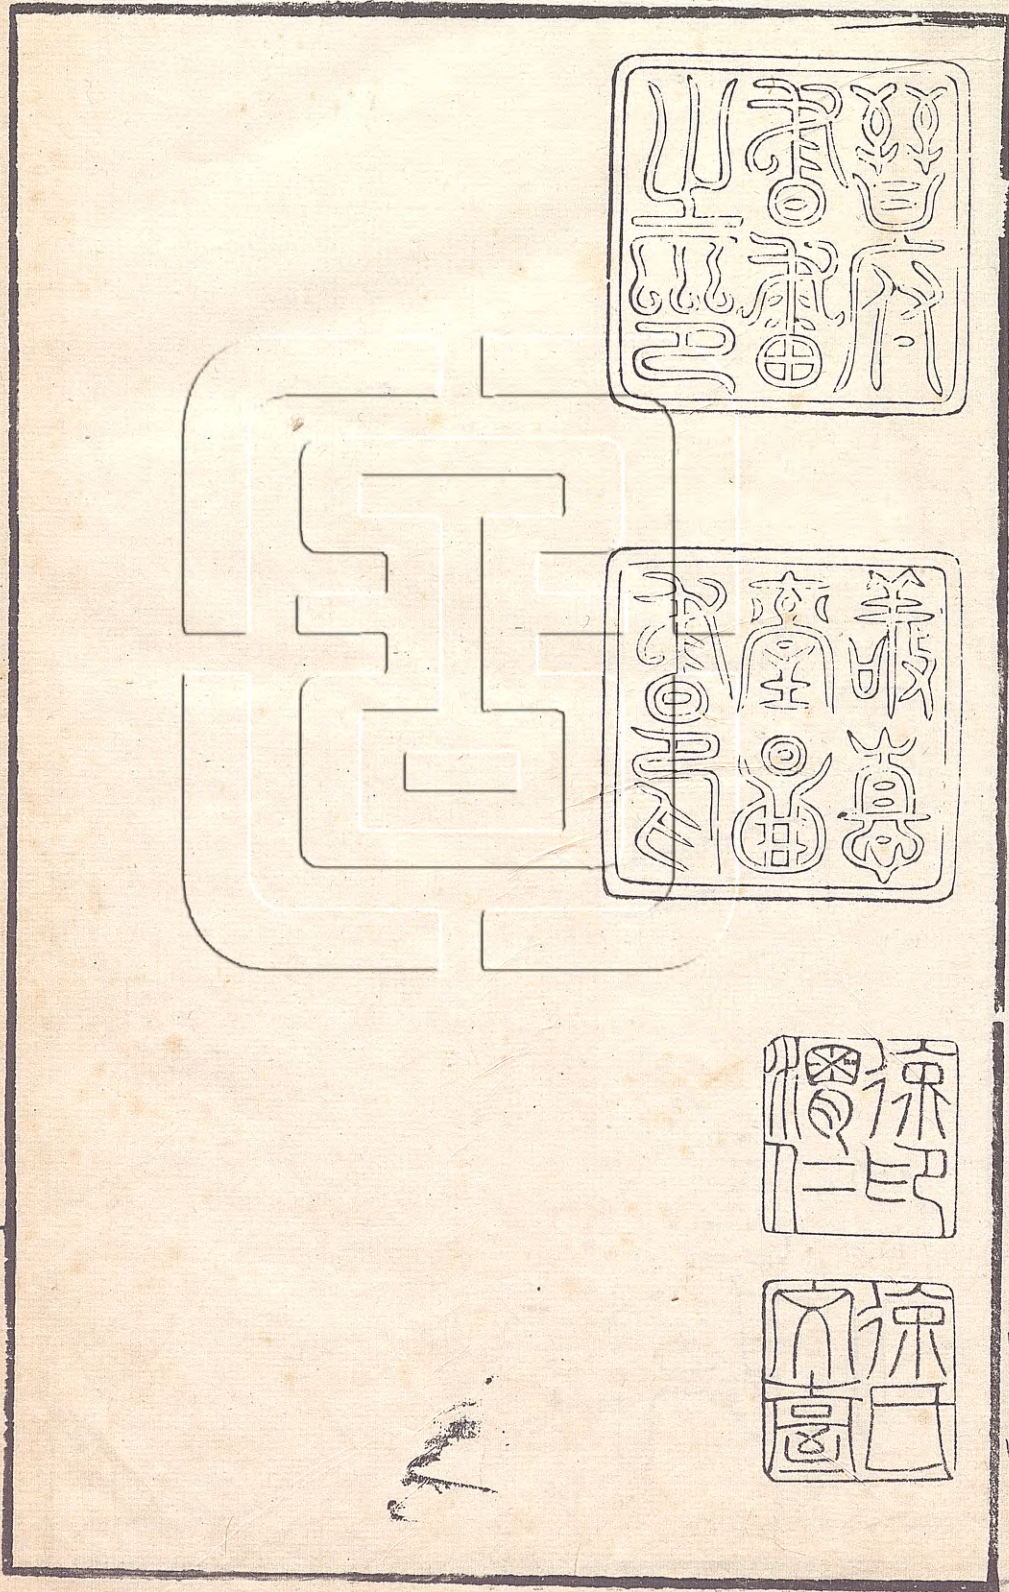 晉府
書畫
之印
敬德
堂圖
書印
徐印
渭仁
徐氏
文臺